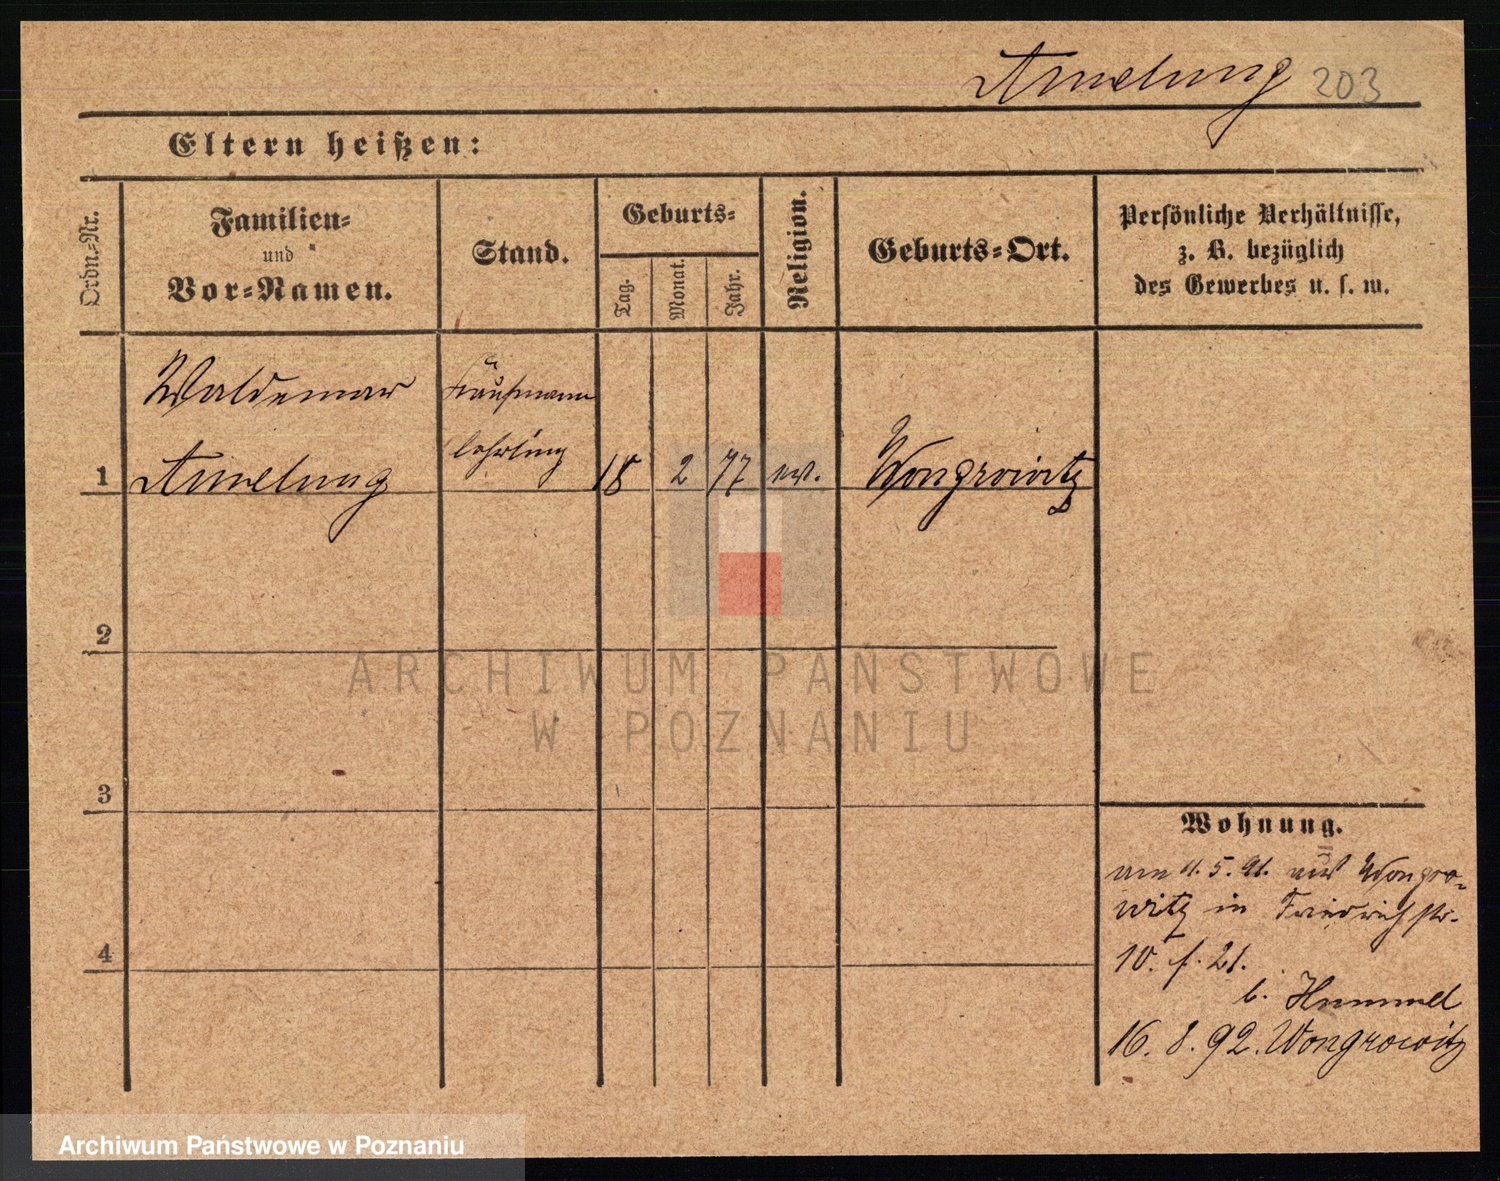 Amelung 203
Eltern heißen:
Ordn.-Nr.
Familien-
und
Vor-Namen.
Stand.
Geburts-
Tag.
Monat.
Jahr.
Religion.
Geburts-Ort.
Persönliche Verhältnisse,
z. B. bezüglich
des Gewerbes u. s. w.
Waldemar
Kaufmann
lehrling
1 Amelung 18 2 77 ev. Wongrowitz
2
3
4
ARCHIWUM PAŃSTWOWE
W POZNANIU
Wohnung.
am 11.5.91. aus Wongro-
witz in Friedrichstr.
10. 21.
b. Hummel
16. 8. 92. Wongrowitz
Archiwum Państwowe w Poznaniu